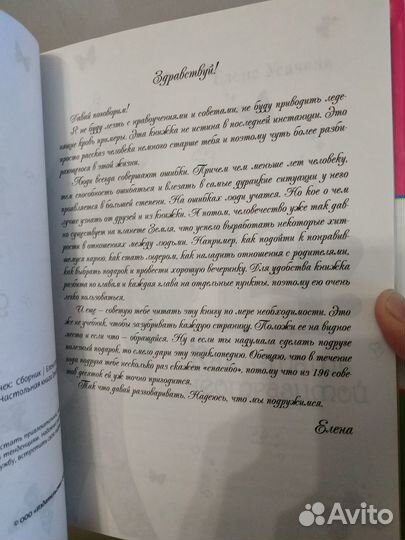 Здравствуй!
Давай поговорим!
Я не буду лезть с нравоучениями и советами, не буду приводить леде-
нящие кровь примеры. Эта книжка не истина в последней инстанции. Это
просто рассказ человека немного старше тебя и поэтому чуть более разби-
рающегося в этой жизни.
Люди всегда совершают ошибки. Причем чем меньше лет человеку,
тем способность ошибаться и влезать в самые дурацкие ситуации у него
проявляется в большей степени. На ошибках люди учатся. Но кое о чем
лучше узнать от друзей и из книжки. А потом, человечество уже так дав-
но существует на планете Земля, что успело выработать некоторые хит-
рости в отношениях между людьми. Например, как подойти к понравив-
шемуся парню, как стать лидером, как наладить отношения с родителями,
как выбрать подарок и провести хорошую вечеринку. Для удобства книжка
разбита по главам и каждая глава на отдельные пункты, поэтому ею очень
легко пользоваться.
И еще – советую тебе читать эту книгу по мере необходимости. Это
же не учебник, чтобы зазубривать каждую страницу. Положи ее на видное
место и если что – обращайся. Ну а если ты надумала сделать подруге
полезный подарок, то смело дари эту энциклопедию. Обещаю, что в течение
года подруга тебе несколько раз скажет «спасибо», потому что из 196 сове-
тов десяток ей уж точно пригодится.
Так что давай разговаривать. Надеюсь, что мы подружимся.
Елена
чек: Сборник | Елен
Настольная книга
стать привлекательн
тенденции, надежн
ужбу, встретить св
© ООО «Издательс
Avito